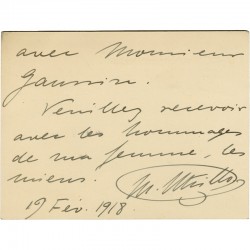 avec Monsieur
Gaussin.
Veuillez recevoir
avec les hommages
de ma femme, les
miens.
19 Fév. 1918